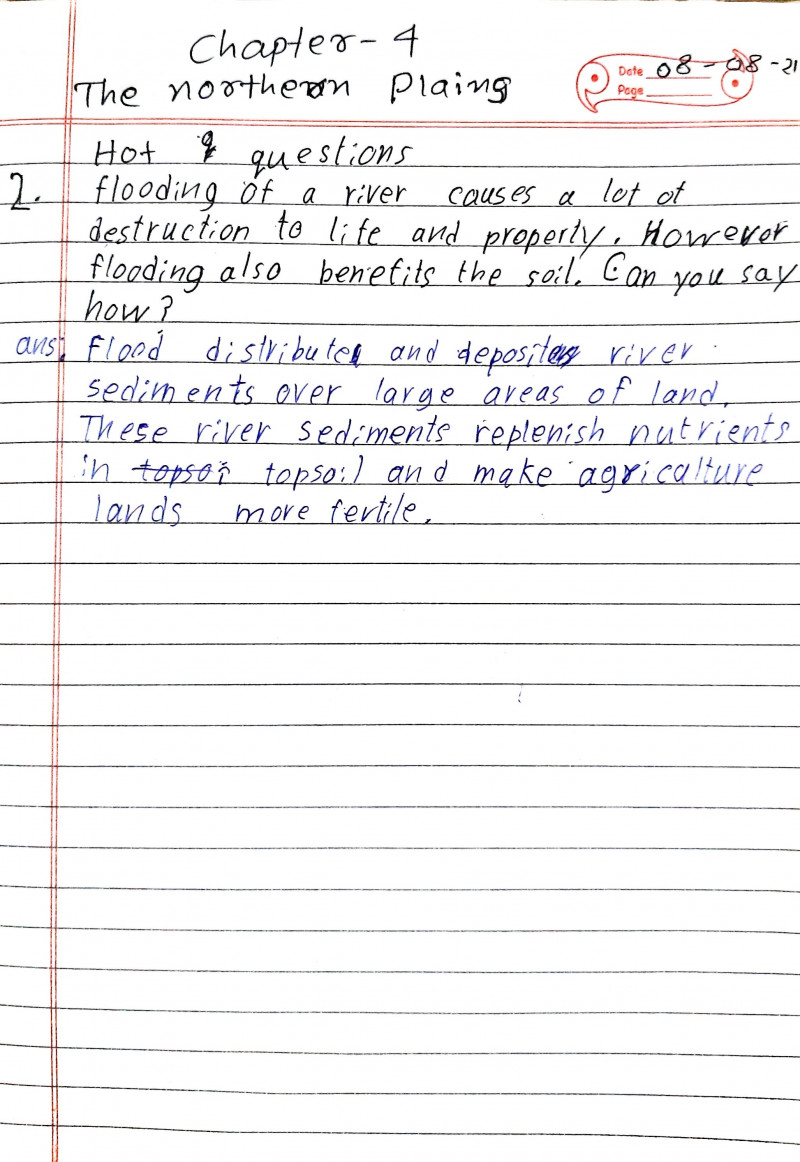 Chapter-4
The northern Plains
Date 08-08-21
Page
Hot questions
2. flooding of a river causes a lot of
destruction to life and property. However
flooding also benefits the soil. Can you say
how?
ans: Flood distributes and deposites river
sediments over large areas of land.
These river sediments replenish nutrients
in topsoi topsoil and make agriculture
lands more fertile.